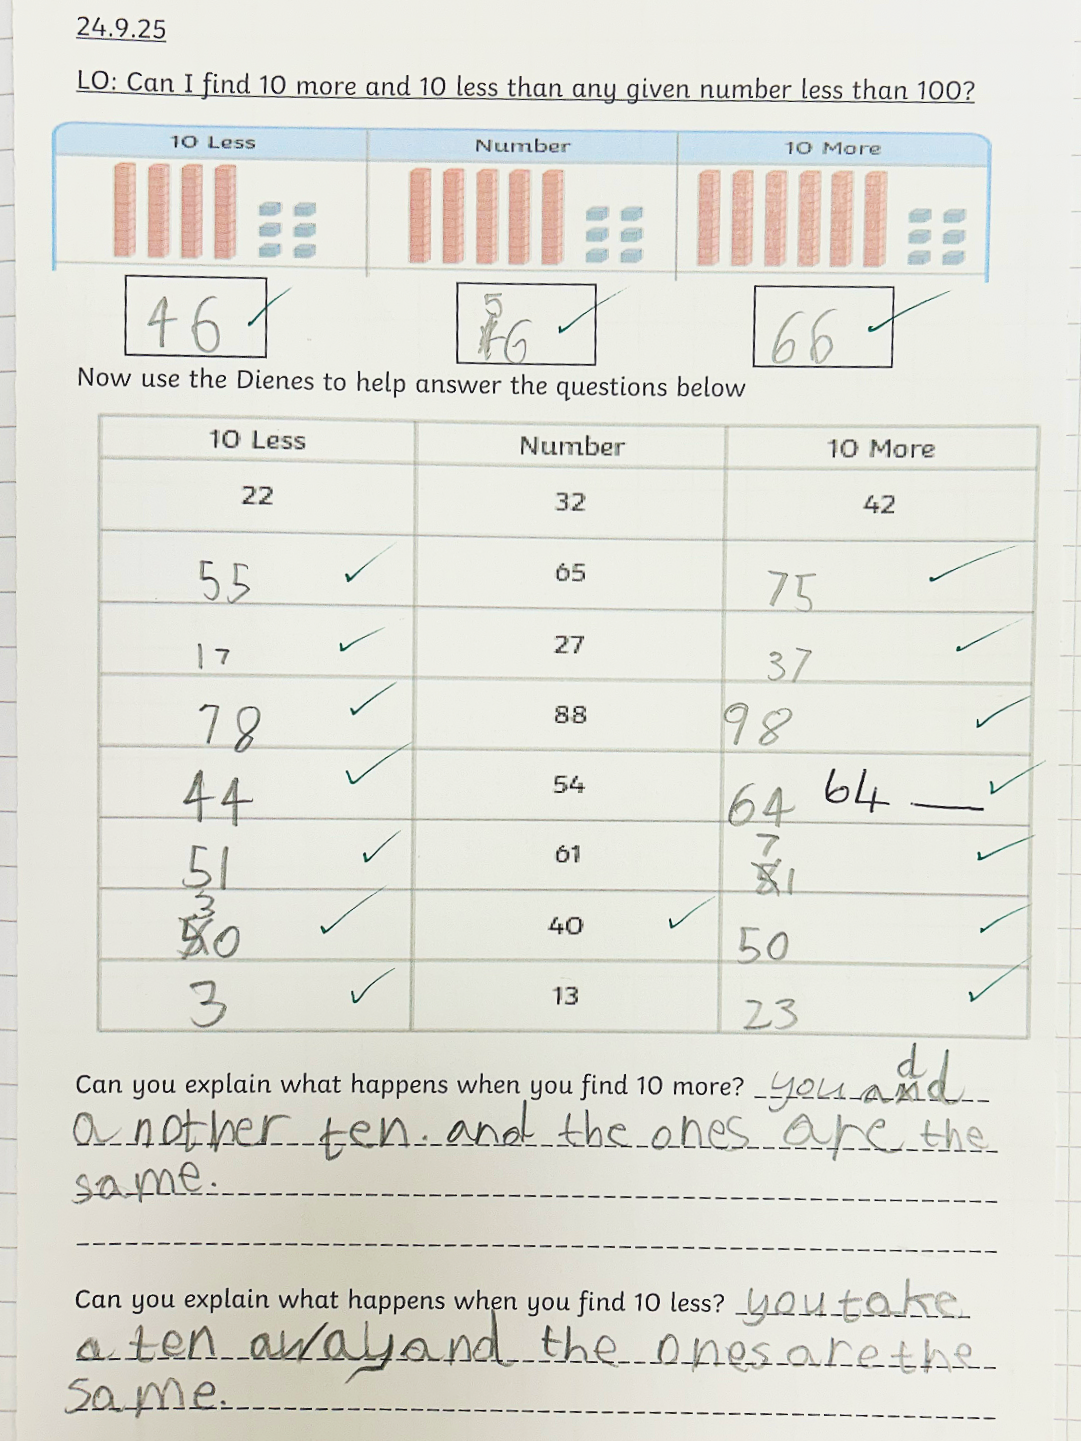 24.9.25
LO: Can I find 10 more and 10 less than any given number less than 100?
10 Less Number 10 More
46 56 66
Now use the Dienes to help answer the questions below
10 Less Number 10 More
22 32 42
55 65 75
17 27 37
78 88 98
44 54 64 64
51 61 71
30 40 50
3 13 23
Can you explain what happens when you find 10 more? you add
a nother ten. and the ones are the
same.
Can you explain what happens when you find 10 less? you take
a ten away and the ones are the
same.